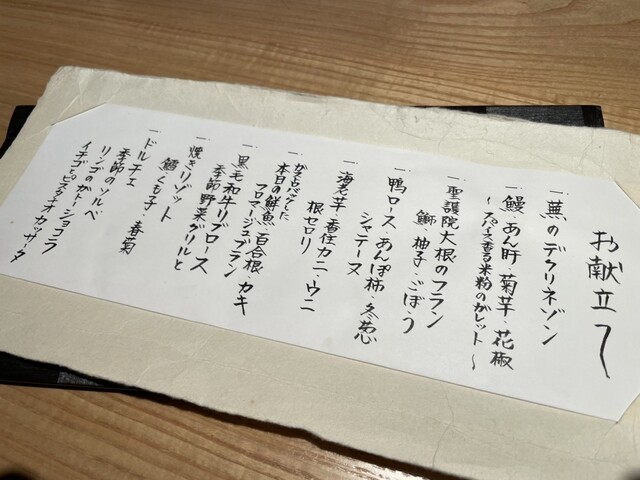 お献立て
一. 蕪のデクリネゾン
一. 鰻・あん肝・菊芋・花椒
〜スパイス香る米粉のガレット〜
一. 聖護院大根のフラン
鰤・柚子・ごぼう
一. 鴨ロース・あんぽ柿・冬葱
シャテーヌ
一. 海老芋・香住カニ・ウニ
根セロリ
一. がストロバックした
本日の鮮魚・百合根・カキ
フロマージュブラン
一. 黒毛和牛リブロース
季節野菜グリルと
一. 焼きリゾット
鱈・くも子・春菊
一. ドルチェ
季節のソルベ
リンゴのガトーショコラ
イチゴとピスタチオカッサータ